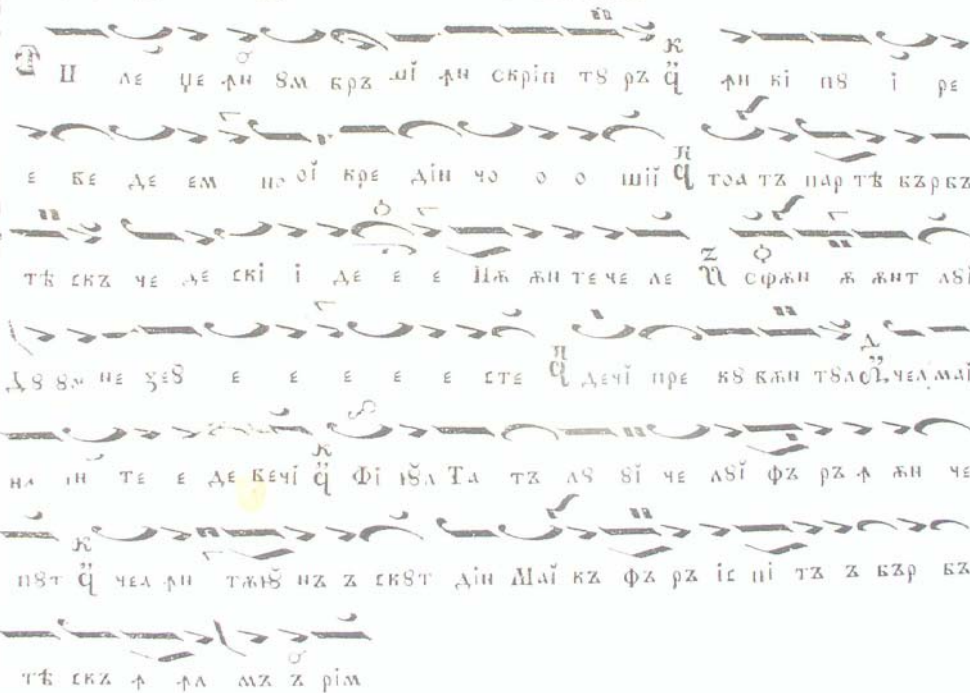 Т П ле це ꙟн ꙋм брꙋ шї ꙟн скрїп тꙋ ръ ꙟн кі пꙋ ї ре
е ве де ем но ої кре дїн чо о о шїї тоа тъ пар тѣ бърбъ
тѣ скъ че де скі і де е е Пѫ ѫн те че ле сфѫн ѫ ѫнт лꙋї
Дꙋ ꙋм не ѕеꙋ е е е е е сте дечї пре кꙋ вѫн тꙋл чел маї
на ин те е де вечї Фї юл Та тъ лꙋ ꙋї че лꙋї фъ ръ ꙟ ѫн че
пꙋт чел ꙟн тѫю нъ ъ скꙋт дїн Маї къ фъ ръ іс пі тъ ъ бър бъ
тѣ скъ ꙟ ꙟл мъ ъ рїм